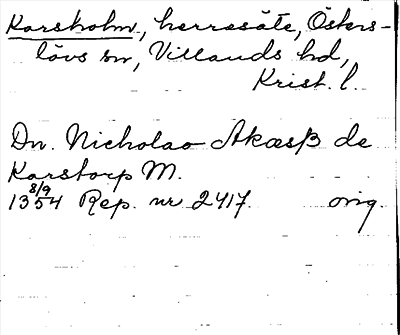 Karsholm, herresäte, Österslövs sn, Villands hd,
Krist. l.
Dn. Nicholao Akæsß de
Karstorp M.
13 8/9 54 Rep. nr 2417. orig.